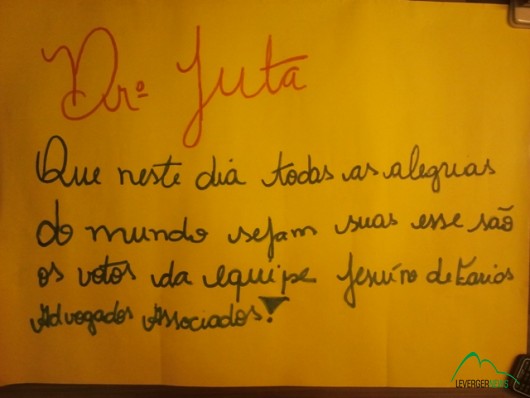 Drº Juta
Que neste dia todas as alegrias
do mundo sejam suas esse são
os votos da equipe Jesuíno de Farios
Advogados Associados!
LEVERGERNEWS